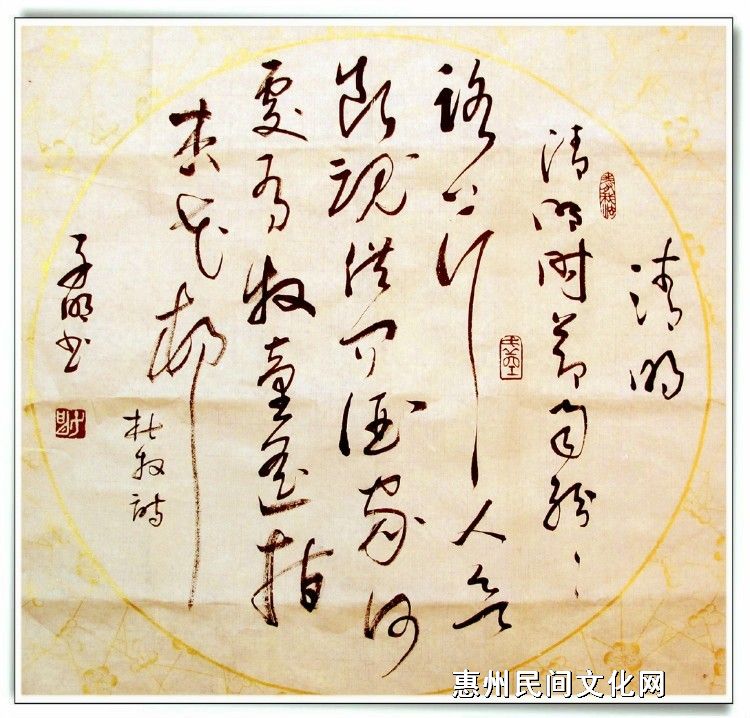 清明
清明時節雨紛〻
路上行人欲
斷魂借問酒家何
處有牧童遥指
杏花邨
杜牧詩
子明書
惠州民间文化网